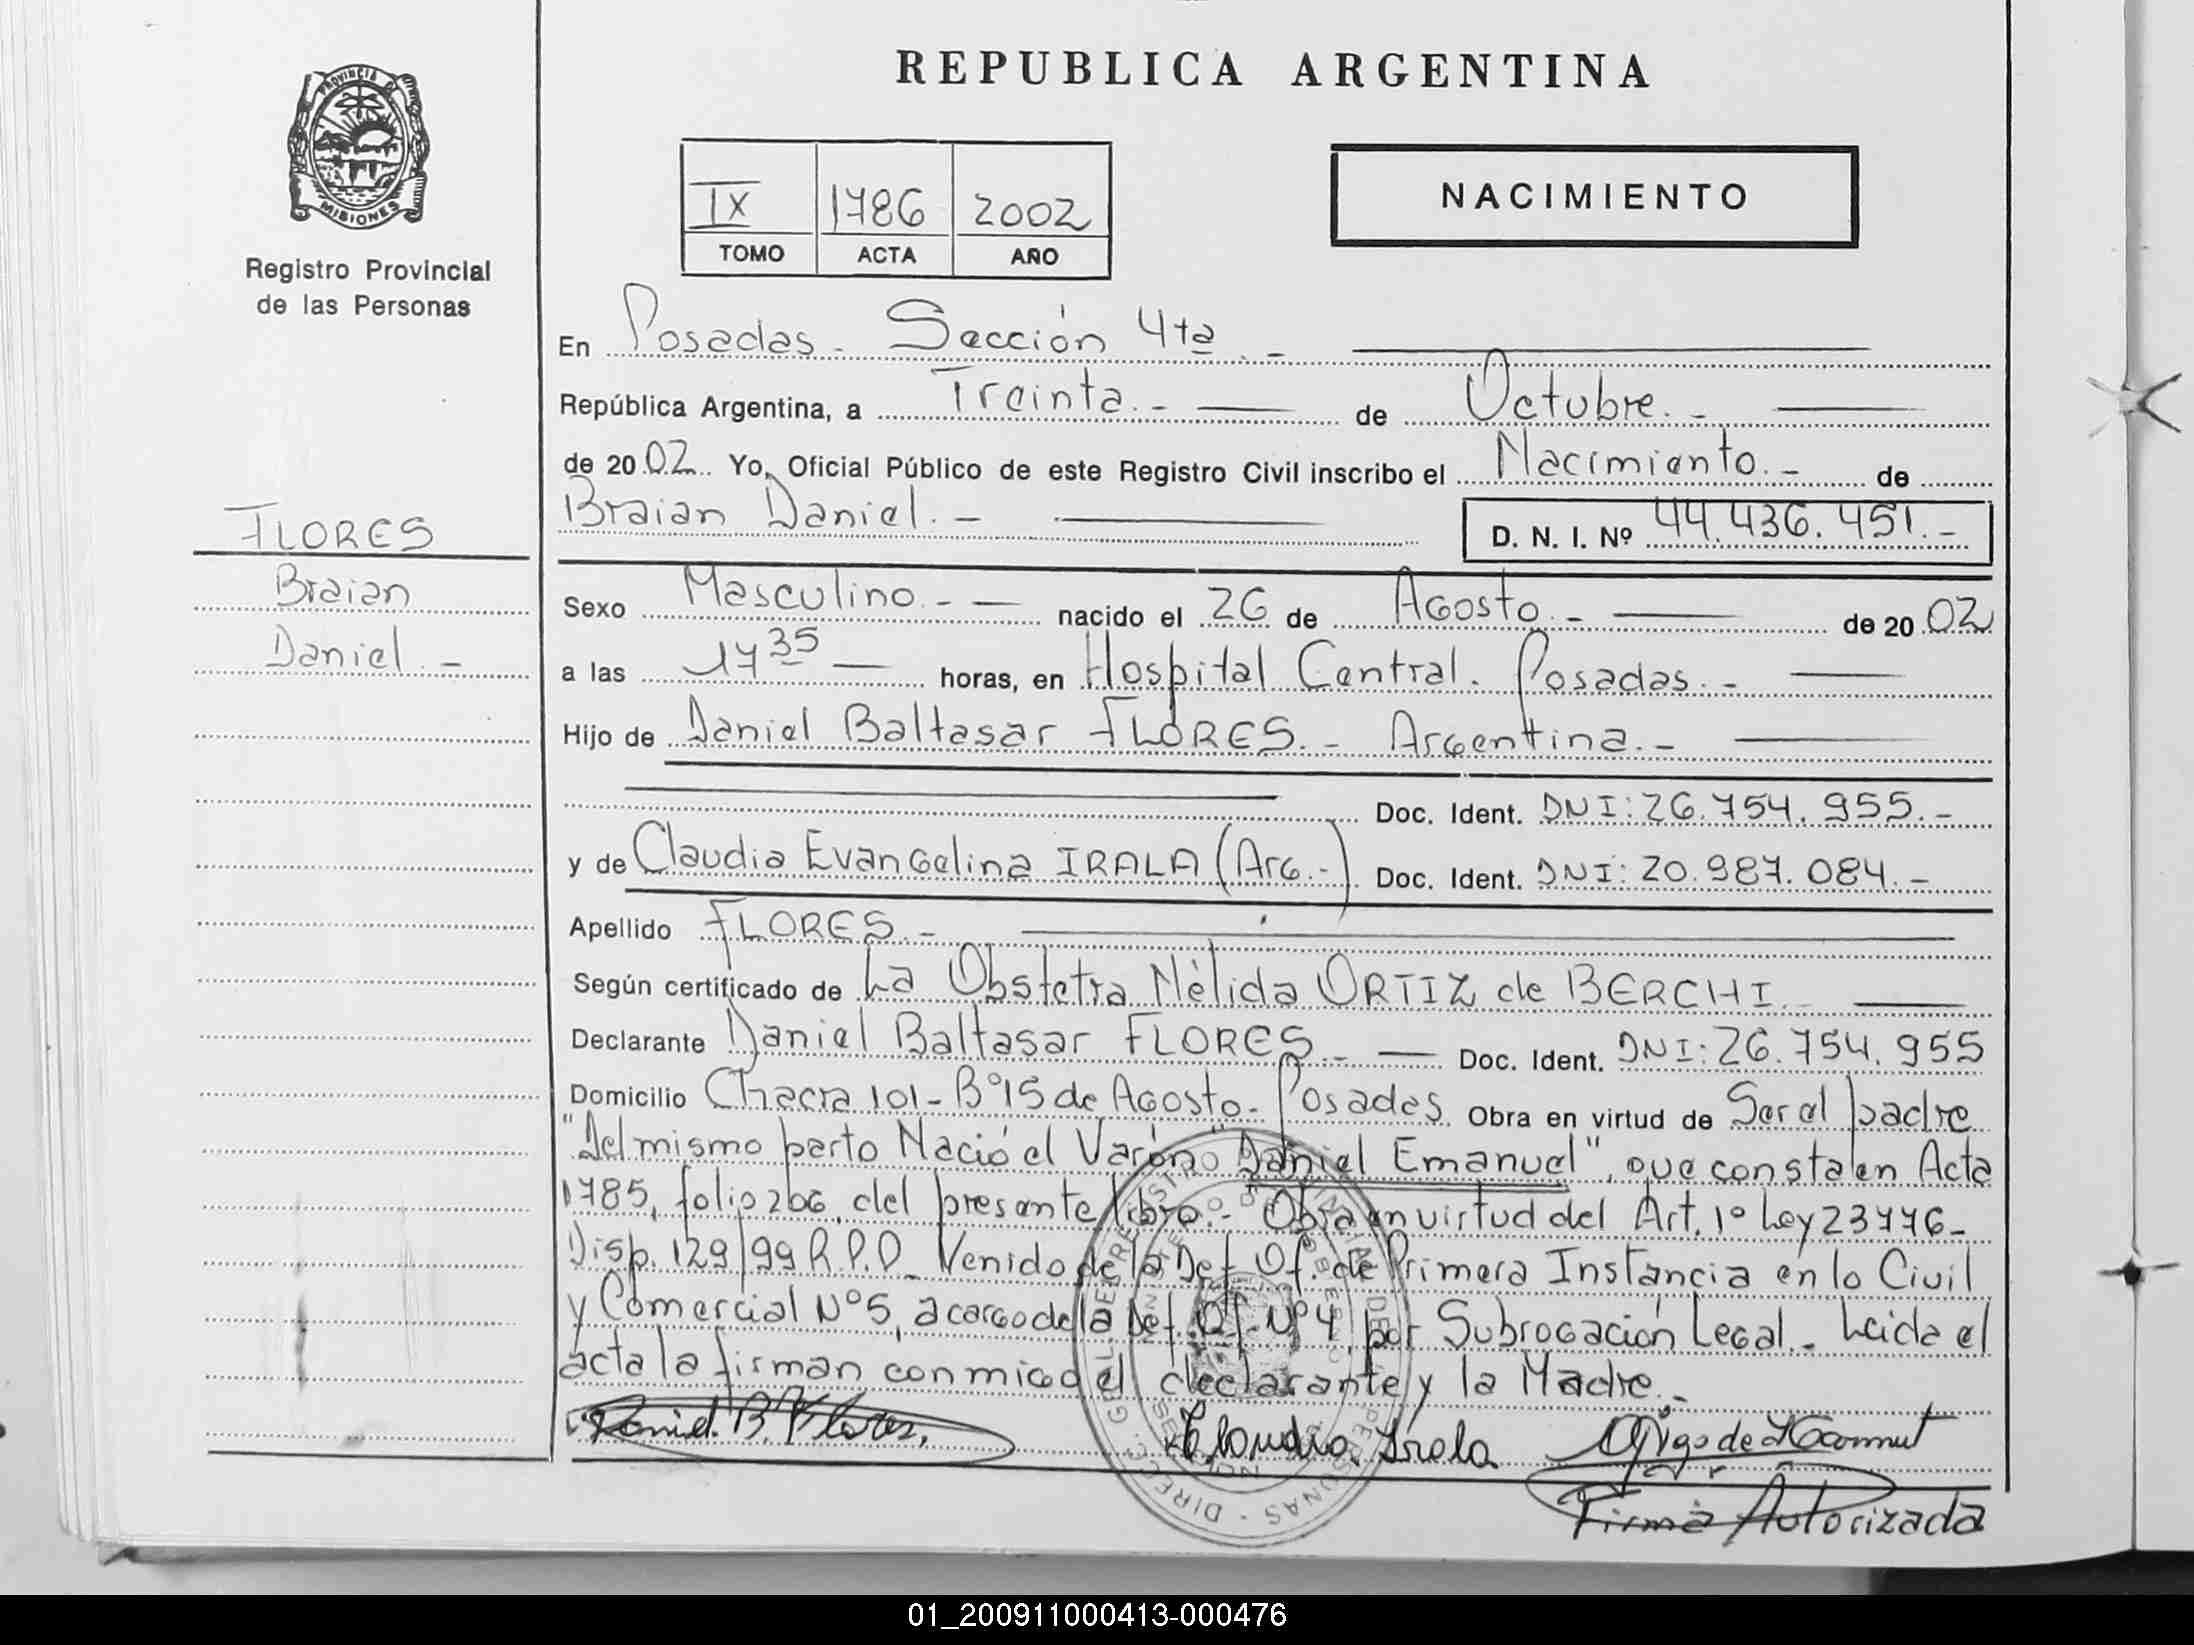 PROVINCIA DE
MISIONES
Registro Provincial
de las Personas
FLORES
Braian
Daniel.-
REPUBLICA ARGENTINA
IX 1786 2002
TOMO ACTA AÑO
NACIMIENTO
En Posadas - Sección 4ta.-
República Argentina, a Treinta.- de Octubre.-
de 2002. Yo, Oficial Público de este Registro Civil inscribo el Nacimiento.- de
Braian Daniel.- D. N. I. Nº 44.436.451.-
Sexo Masculino.- nacido el 26 de Agosto.- de 2002
a las 17 35 horas, en Hospital Central. Posadas.-
Hijo de Daniel Baltasar FLORES.- Argentina.-
Doc. Ident. DNI: 26.754.955.-
y de Claudia Evangelina IRALA (Arg.-) Doc. Ident. DNI: 20.987.084.-
Apellido FLORES.-
Según certificado de La Obstetra Nélida ORTIZ de BERCHI.
Declarante Daniel Baltasar FLORES.- Doc. Ident. DNI: 26.754.955
Domicilio Chacra 101 - Bº 15 de Agosto - Posadas. Obra en virtud de Ser el padre
"Del mismo parto Nació el Varón "Daniel Emanuel", que consta en Acta
1785, folio 206, del presente libro.- "Obra en virtud del Art. 1º Ley 23776-
Disp. 129/99 R.P.P. Venido de la Def. Of. de Primera Instancia en lo Civil
y Comercial Nº 5, a cargo de la Def. Of. Nº 4, por Subrogación Legal.- Leida el
acta la firman conmigo el declarante y la Madre.-
Daniel B. Flores. Claudia Irala
Firma Autorizada
01_200911000413-000476